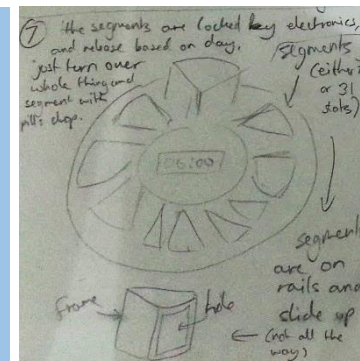 ⑦ the segments are locked by electronics,
and release based on day.
just turn over
whole thing and
segment with
pills drop.
segments
(either 7
or 31
slots)
06:00
segments
are on
rails and
slide up
(not all the
way)
Frame
hole